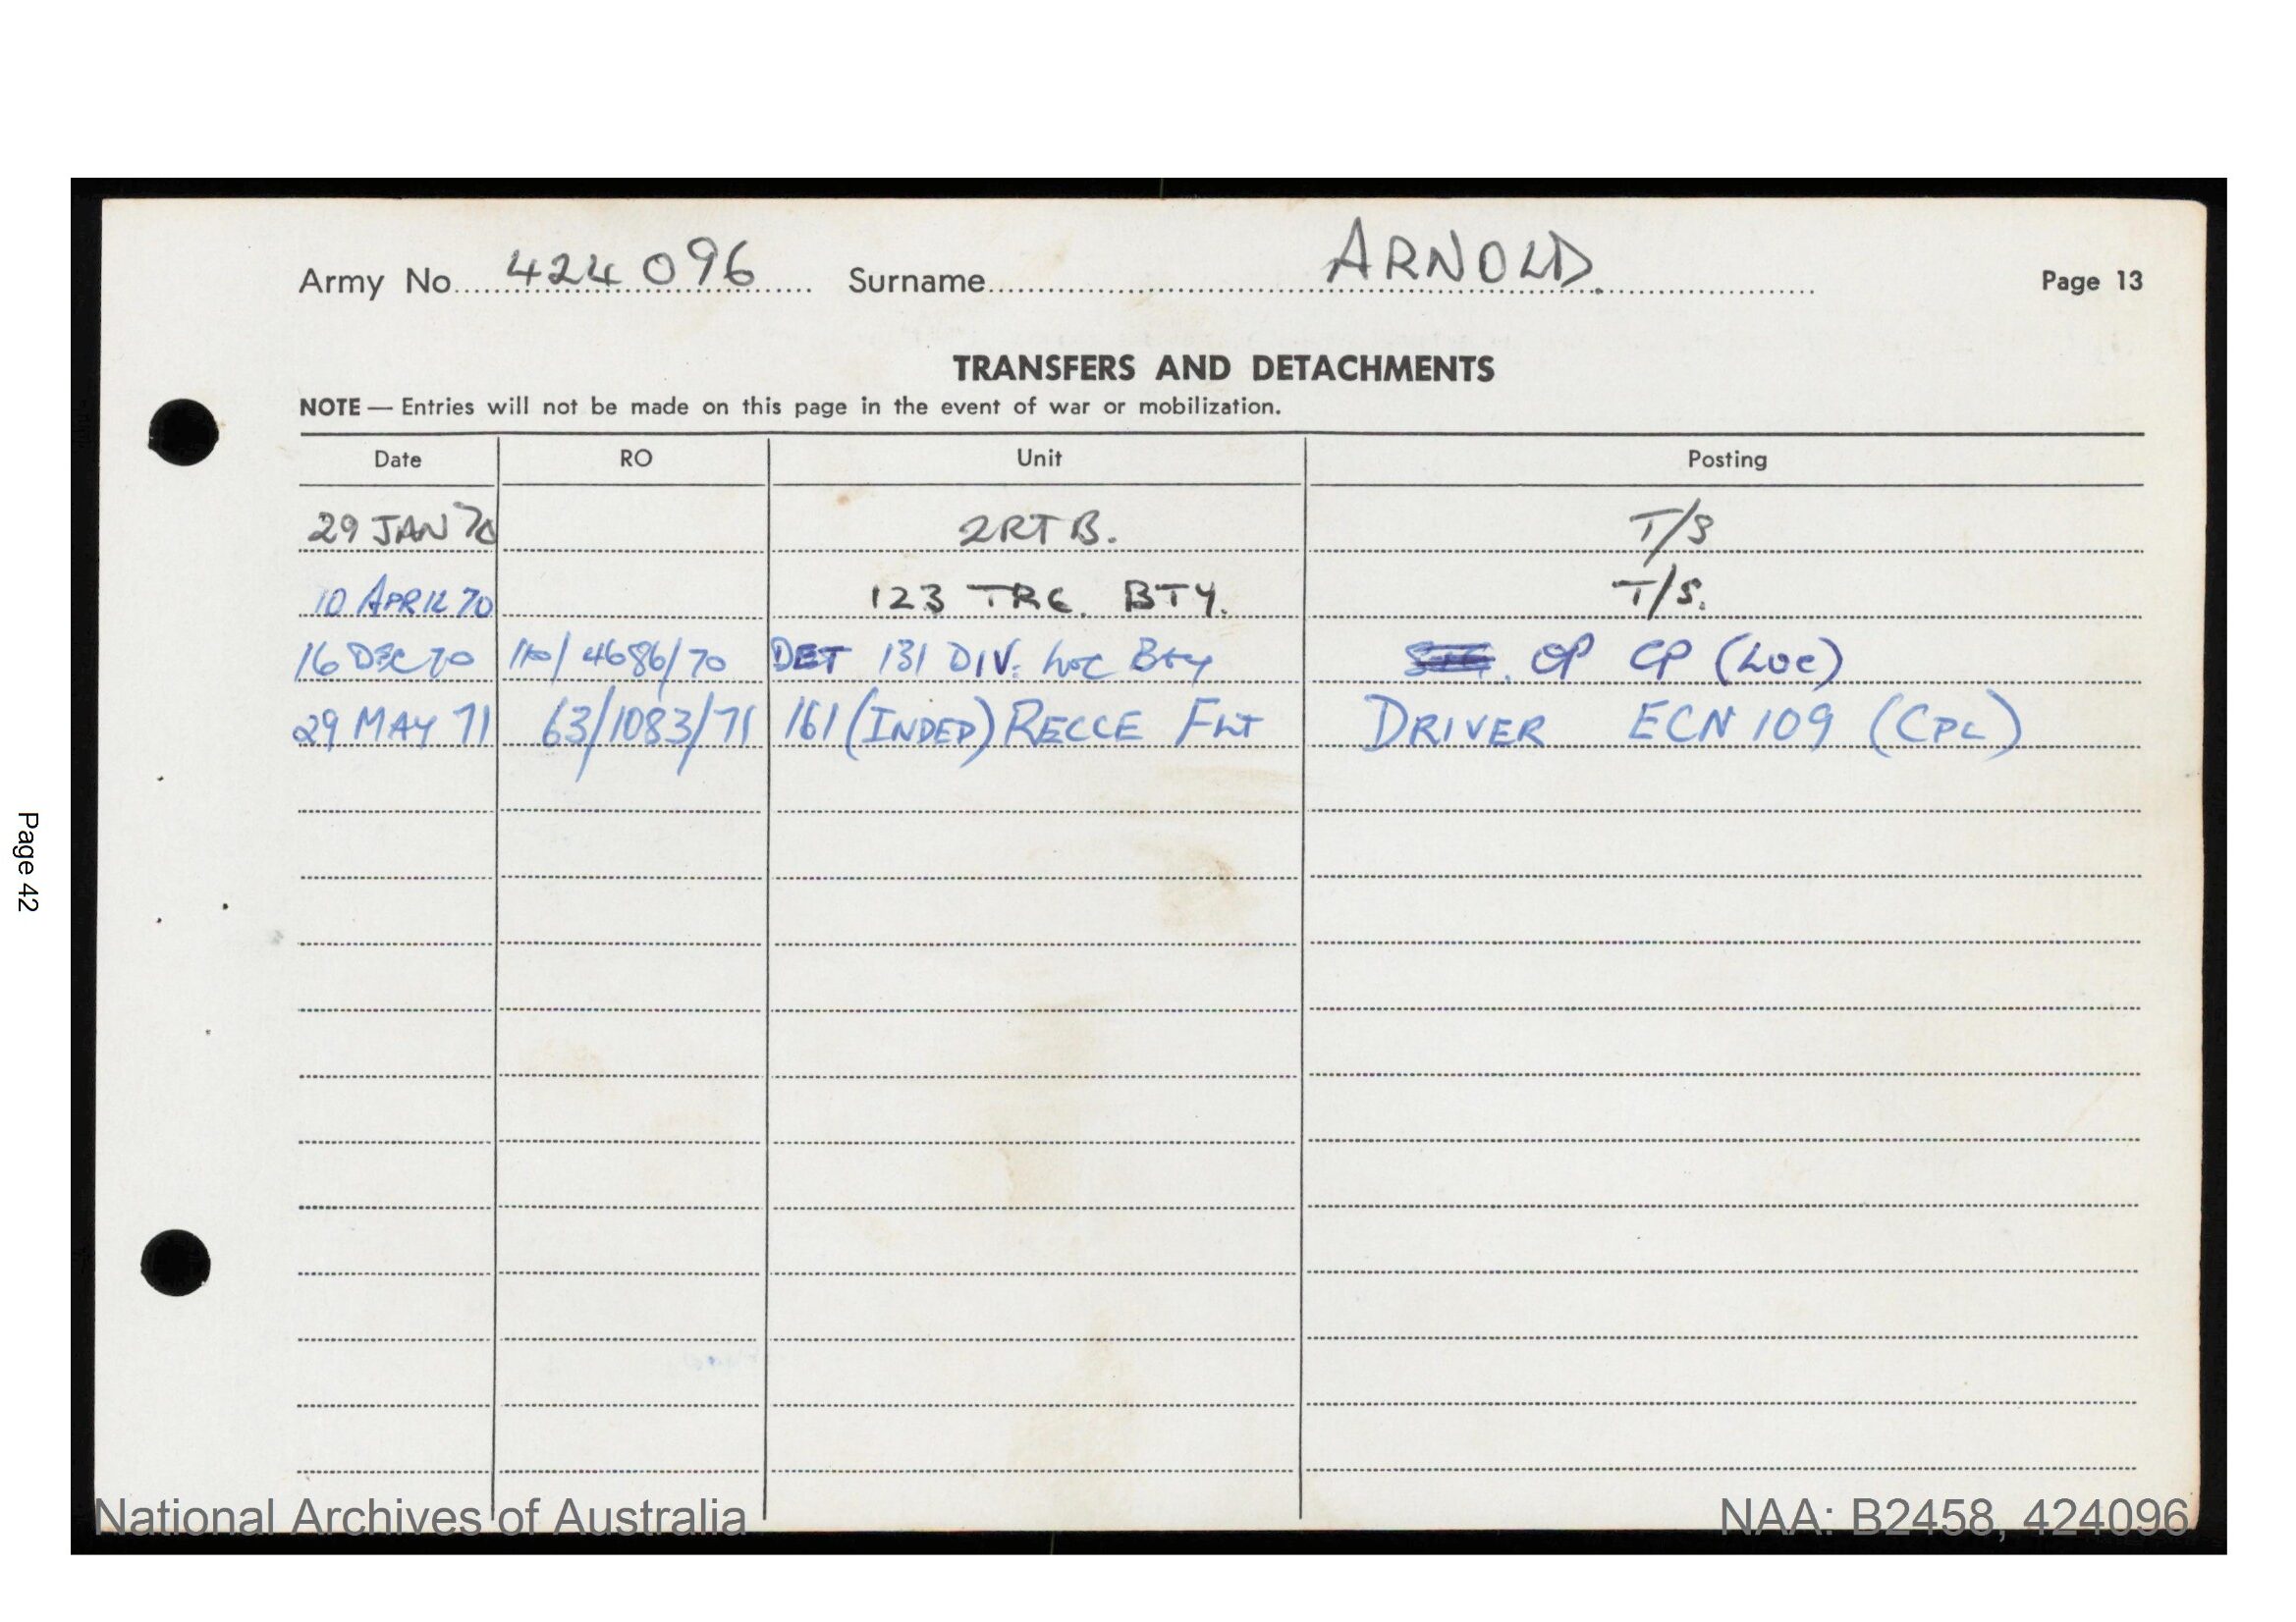 Army No. 424096 Surname ARNOLD. Page 13
TRANSFERS AND DETACHMENTS
NOTE — Entries will not be made on this page in the event of war or mobilization.
Date RO Unit Posting
29 JAN 70 2RTB. T/S
10 APRIL 70 123 TRG. BTY. T/S.
16 DEC 70 /4686/70 DET 131 DIV. LOC BTY OP CP (LOC)
29 MAY 71 63/1083/71 161 (INDEP) RECCE FLT DRIVER ECN 109 (CPL)
Page 42
National Archives of Australia NAA: B2458, 424096